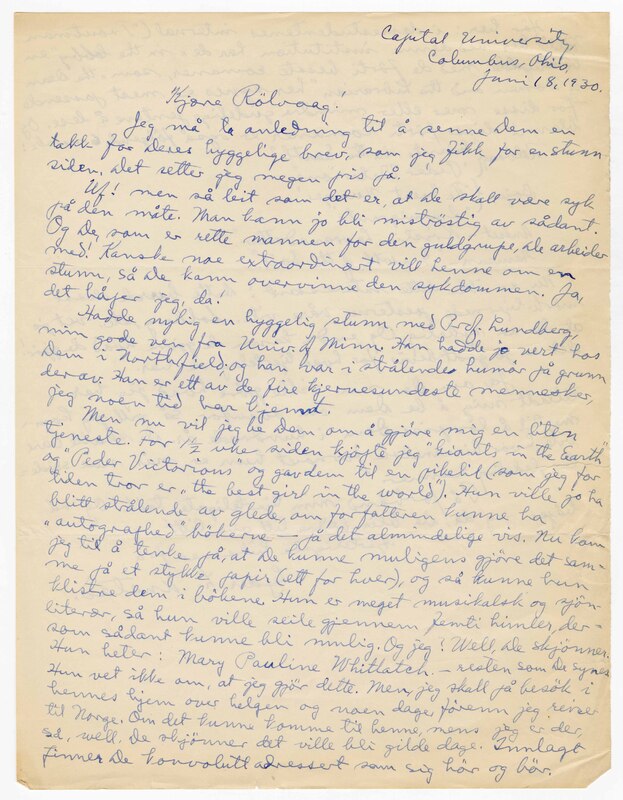 Capital University,
Columbus, Ohio,
Juni 18, 1930.
Kjære Rölvaag!
Jeg må ta anledning til å senne Dem en
takk for Deres hyggelige brev, som jeg fikk for en stunn
siden. Det setter jeg megen pris på.
Uf! men så leit som det er, at De skall være syk
på den måte. Man kann jo bli miströstig av sådant.
Og De, som er rette mannen for den guldgrupe, De arbeider
med! Kanske noe extraordinært vill henne om en
stunn, så De kann overvinne den sykdommen. Ja,
det håper jeg, da.
Hadde nylig en hyggelig stunn med Prof. Lundberg,
min gode ven fra Univ. of Minn. Han hadde jo vert hos
Dem i Northfield og han var i strålende humör på grunn
derav. Han er ett av de fire kjernesundeste mennesker,
jeg noen tid har kjennt.
Men nu vil jeg be Dem om å gjøre mig en liten
tjeneste. For 1½ uke siden kjöpte jeg "Giants in the Earth"
og "Peder Victorious" og gav dem til en pikelil (som jeg for
tiden tror er "the best girl in the world"). Hun ville jo ha
blitt strålende av glede, om forfatteren kunne ha
"autographed" bökerne — på det almindelige vis. Nu kom
jeg til å tenke på, at De kunne muligens gjöre det sam-
me på et stykke papir (ett for hver), og så kunne hun
klistre dem i bökene. Hun er meget musikalsk og skjön-
literær, så hun ville seile gjennem femti himler, der-
som sådant kunne bli mulig. Og jeg! Well, De skjönner.
Hun heter: Mary Pauline Whitlatch — resten som De synes.
Hun vet ikke om, at jeg gjör dette. Men, jeg skall på besök i
hennes hjem over helgen og noen dage, förenn jeg reiser
til Norge. Om det kunne komme til henne, mens jeg er der,
så, well. De skjönner det ville bli gilde dage. Innlagt
finner De konvolutt adressert som sig hör og bör.